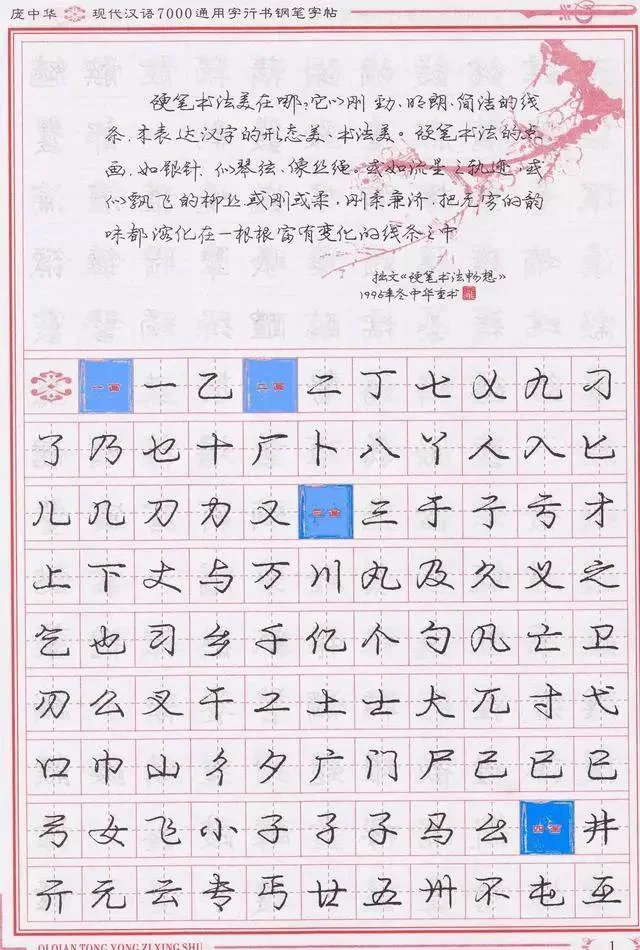 庞中华 现代汉语7000通用字行书钢笔字帖
硬笔书法美在哪?它以刚劲、明朗、简洁的线
条、来表达汉字的形态美、书法美。硬笔书法的点
画、如银针、似琴弦、像丝绳。或如流星之轨迹,或
似飘飞的柳丝或刚或柔,刚柔兼济,把无穷的韵
味都溶化在一根根富有变化的线条之中
拙文《硬笔书法畅想》
1996年冬中华重书
一画 一 乙 二画 二 丁 七 乂 九 刁
了 乃 乜 十 厂 卜 八 丫 人 入 匕
儿 几 刀 力 又 三画 三 于 亍 亏 才
上 下 丈 与 万 川 丸 及 久 义 之
乞 也 习 乡 千 亿 个 勺 凡 亡 卫
刃 么 叉 干 工 土 士 大 兀 寸 弋
口 巾 山 彳 夕 广 门 尸 己 已 巳
弓 女 飞 小 子 孑 孓 马 幺 四画 井
亓 元 云 专 丐 廿 五 卅 不 屯 互
QIQIAN TONG YONG ZI XING SHU
1